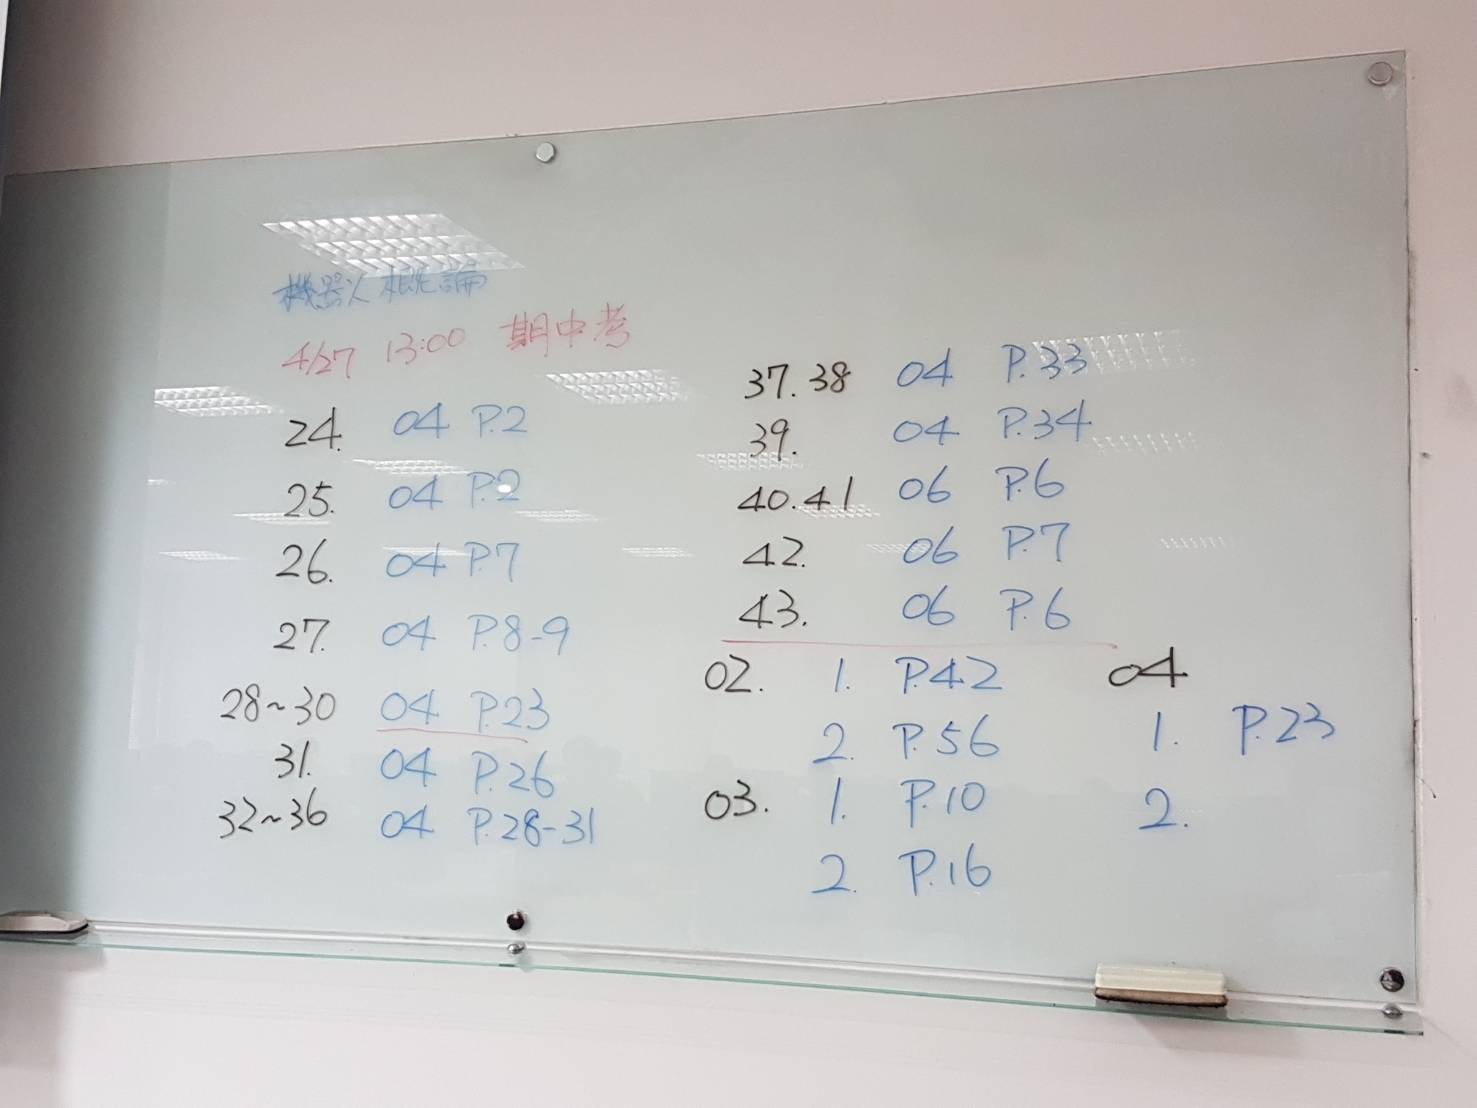 機器人概論
4/27 13:00 期中考
24. 04 P.2
25. 04 P.2
26. 04 P.7
27. 04 P.8-9
28~30 04 P.23
31. 04 P.26
32~36 04 P.28-31
37.38 04 P.33
39. 04 P.34
40.41 06 P.6
42. 06 P.7
43. 06 P.6
02. 1. P.42
2. P.56
03. 1. P.10
2. P.16
04
1. P.23
2.